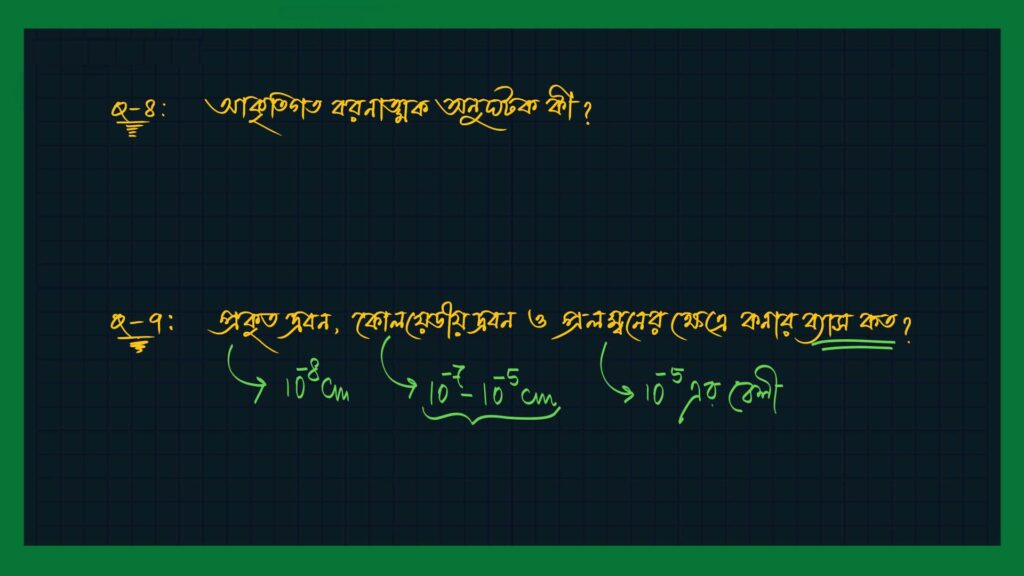 Q-8: আকৃতিগত বরনাত্মক অনুঘটক কী?
Q-9: প্রকৃত দ্রবন, কোলয়েডীয় দ্রবন ও প্রলম্বনের ক্ষেত্রে কনার ব্যাস কত?
10⁻⁸ cm 10⁻⁷ - 10⁻⁵ cm 10⁻⁵ এর বেশী